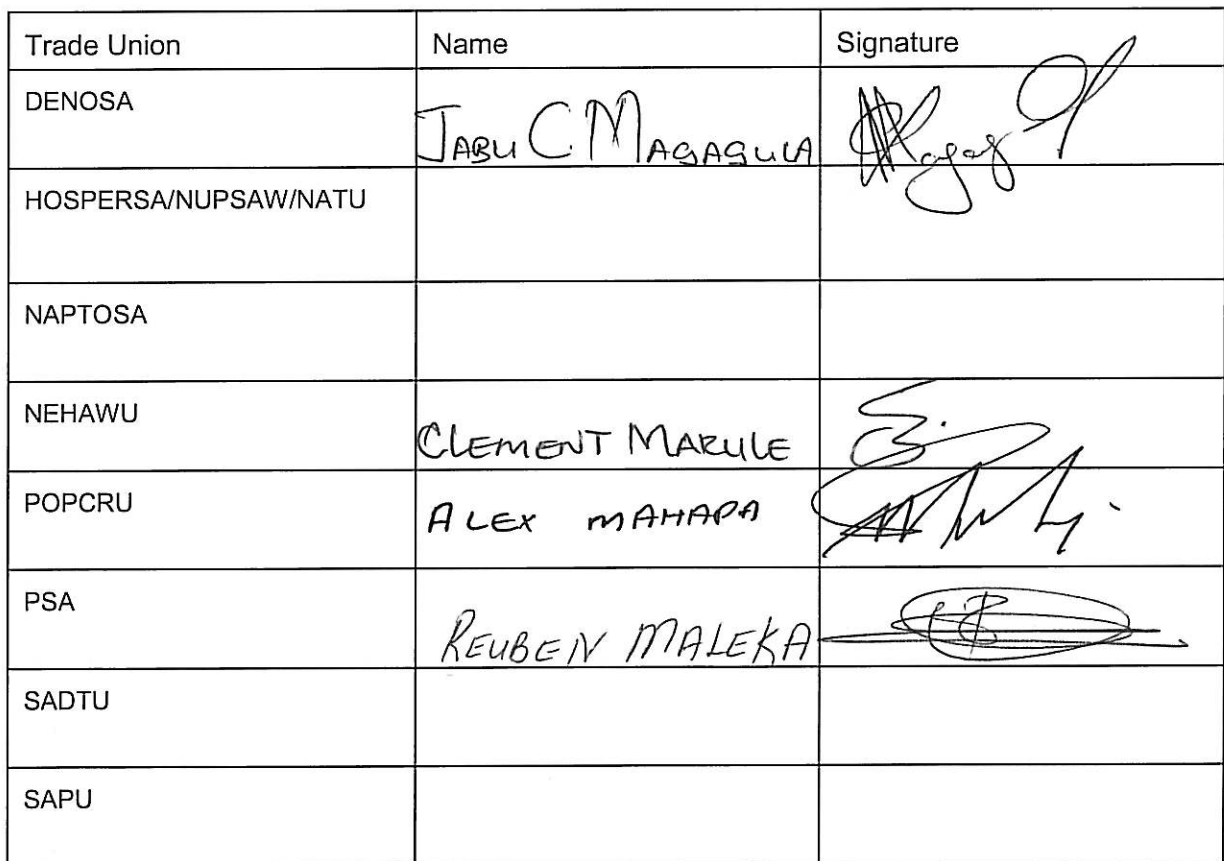 Trade Union Name Signature
DENOSA JABU C MAGAGULA
HOSPERSA/NUPSAW/NATU
NAPTOSA
NEHAWU CLEMENT MARULE
POPCRU ALEX MAHAPA
PSA REUBEN MALEKA
SADTU
SAPU